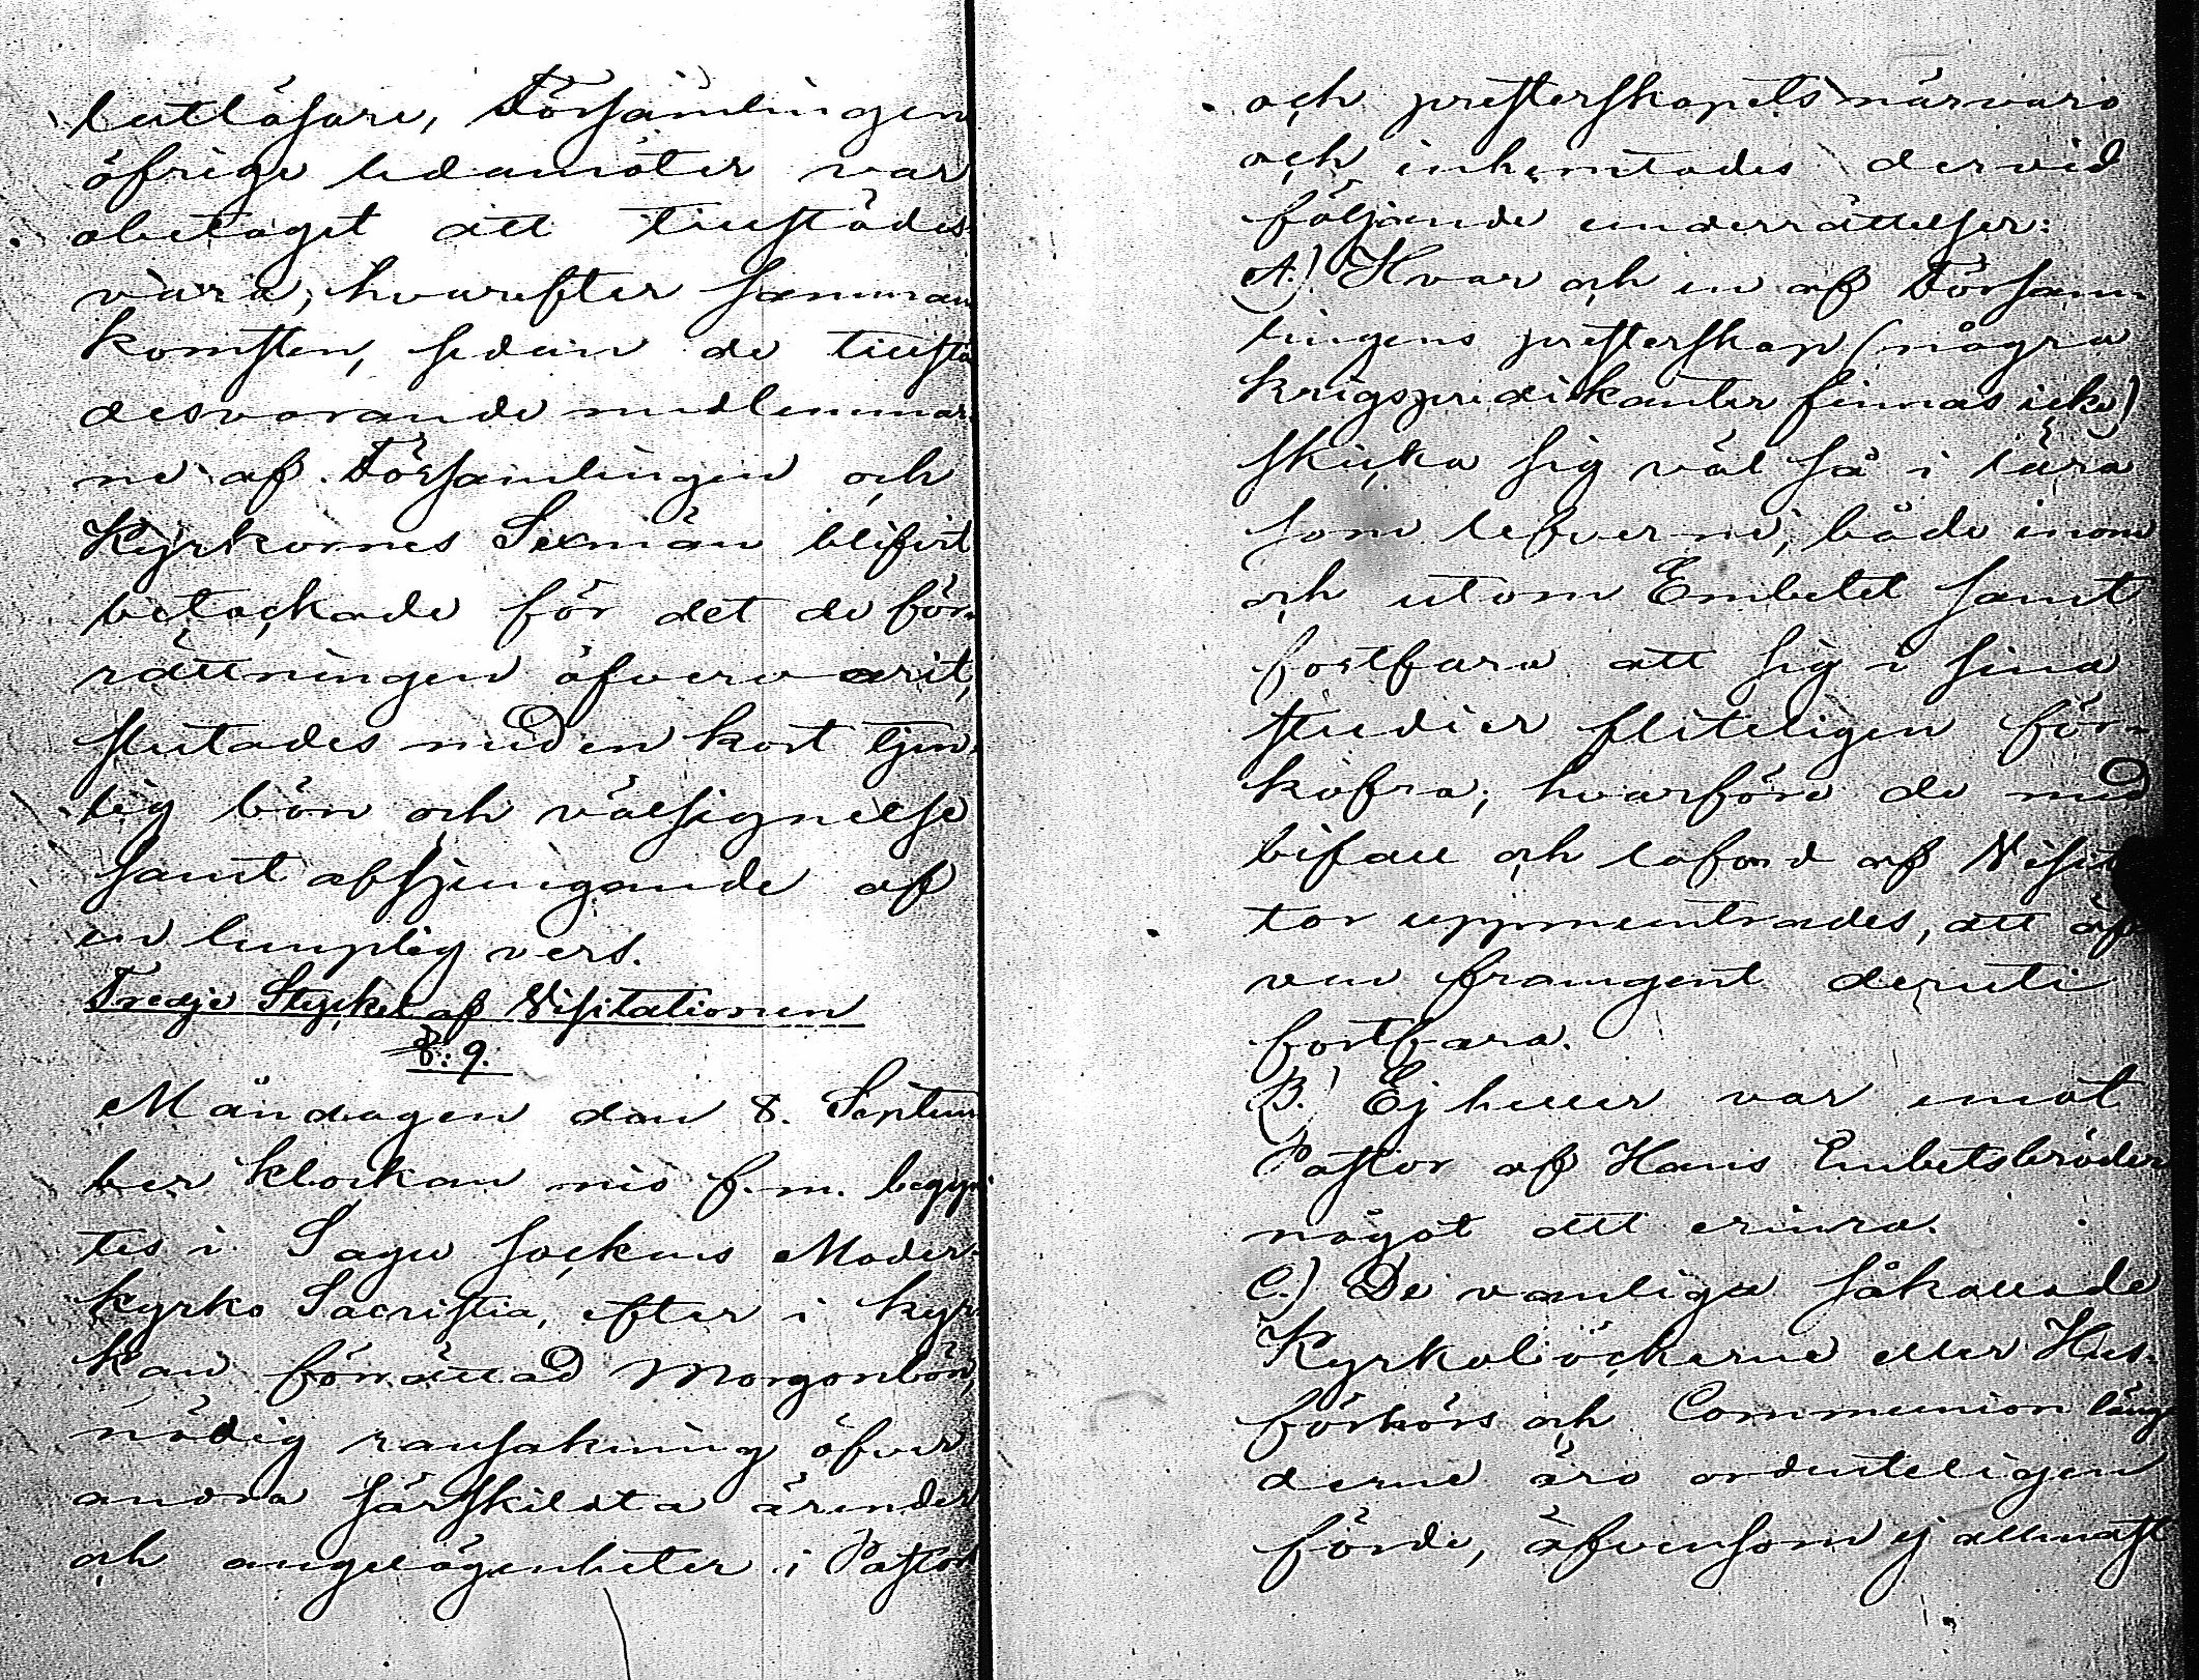 lutläsare, Församlingen
öfrige ledamöter var
obetaget att tillstädes
vara, hvarefter samman
komsten, sedan de tillstä
desvarande medlemmar
ne af Församlingen och
Kyrkornes Sexmän blifvit
betackade för det de för-
rättningen öfvervarit,
slutades med en kort tjen-
lig bön och välsignelse
samt afsjungande af
en lämplig vers.
Tredje Stycket af Visitationen
§: 9.
Måndagen den 8. Septem
ber klockan nio f.m. begyn
tes i Sagu sockens Moder-
kyrko Sacristia, efter i kyr-
kan förrättad Morgonbön,
nödig ransakning öfver
andra särskildta ärender
och angelägenheter i Pastor
och presterskapets närvaro
och inhemtades dervid
följande underrättelser:
A.) Hvar och en af Försam-
lingens presterskap (några
krigspredikanter finnas icke)
skicka sig väl så i lära
som lefverne, både inom
och utom Embetet samt
fortfara att sig i sina
studier fliteligen för-
kofra; hvarföre de med
bifall och loford af Visita
tor uppmuntrades, att äf
ven framgent deruti
fortfara.
B.) Ej heller var emot
Pastor af Hans Embetsbröder
något att erinra.
C.) De vanliga såkallade
Kyrkoböckerne eller Hus-
förhörs och Communion läng
derne äro ordenteligen
förde, äfvensom ej allenast